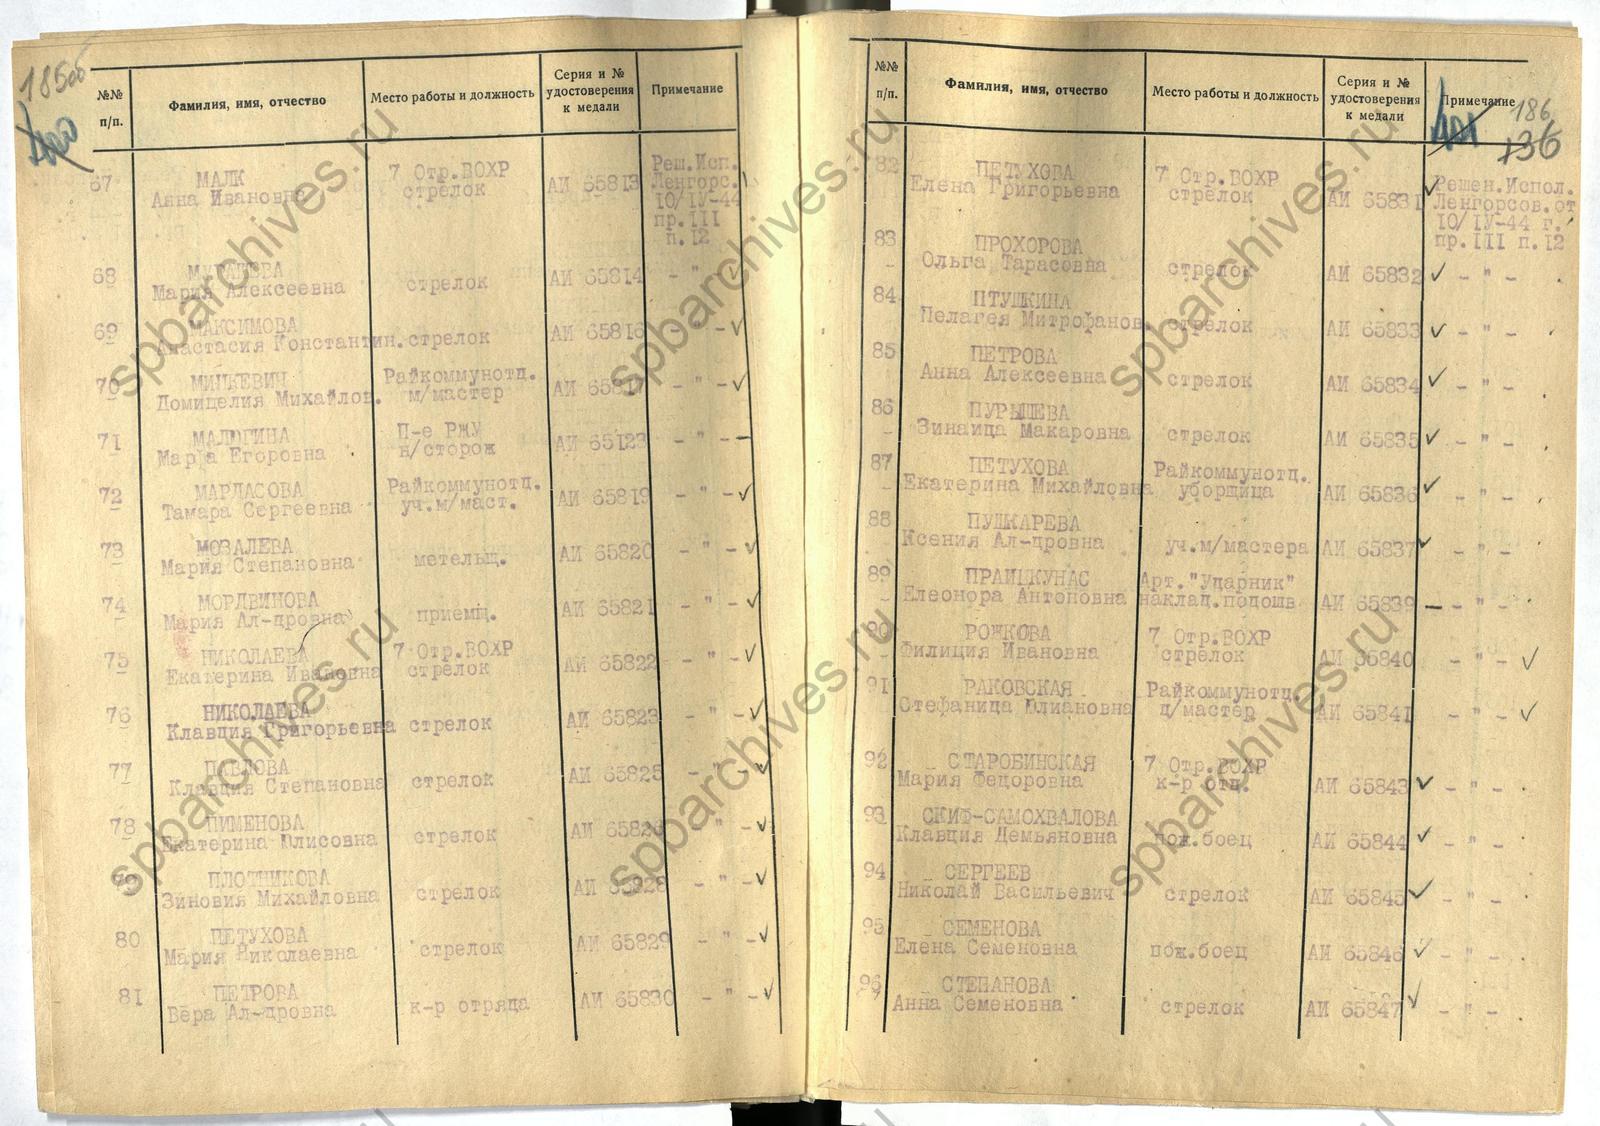 185об
№№
п/п.
Фамилия, имя, отчество
Место работы и должность
Серия и №
удостоверения
к медали
Примечание
67 МАЛК 7 Отр.ВОХР Реш.Исп.
Анна Ивановна стрелок АИ 65813 Ленгорс.
10/IУ-44
пр.III
п.12
68
Мария Алексеевна стрелок АИ 65814 - " -
69 МАКСИМОВА
Анастасия Константин. стрелок АИ 65816 - " -
70 МИЦКЕВИЧ Райкоммунотд.
Домицелия Михайлов. м/мастер АИ 65817 - " -
71 МАЛЮГИНА П-е РЖУ
Марта Егоровна н/сторож АИ 65123 - " -
72 МАРДАСОВА Райкоммунотд.
Тамара Сергеевна уч.м/маст. АИ 65819 - " -
73 МОЗАЛЕВА
Мария Степановна метельщ. АИ 65820 - " -
74 МОРДВИНОВА
Мария Ал-дровна приемщ. АИ 65821 - " -
75 НИКОЛАЕВА 7 Отр.ВОХР
Екатерина Ивановна стрелок АИ 65822 - " -
76 НИКОЛАЕВА
Клавдия Григорьевна стрелок АИ 65823 - " -
77 ПАВЛОВА
Клавдия Степановна стрелок АИ 65825 - " -
78 ПИМЕНОВА
Екатерина Юлисовна стрелок АИ 65826 - " -
79 ПЛОТНИКОВА
Зиновия Михайловна стрелок АИ 65828 - " -
80 ПЕТУХОВА
Мария Николаевна стрелок АИ 65829 - " -
81 ПЕТРОВА
Вера Ал-дровна к-р отряда АИ 65830 - " -
№№
п/п.
Фамилия, имя, отчество
Место работы и должность
Серия и №
удостоверения
к медали
Примечание
186
136
82 ПЕТУХОВА 7 Отр.ВОХР Решен.Испол.
Елена Григорьевна стрелок АИ 65831 Ленгорсов.от
10/IУ-44 г.
пр.III п.12
83 ПРОХОРОВА
Ольга Тарасовна стрелок АИ 65832 - " -
84 ПТУШКИНА
Пелагея Митрофанов. стрелок АИ 65833 - " -
85 ПЕТРОВА
Анна Алексеевна стрелок АИ 65834 - " -
86 ПУРЫШЕВА
Зинаида Макаровна стрелок АИ 65835 - " -
87 ПЕТУХОВА Райкоммунотд.
Екатерина Михайловна уборщица АИ 65836 - " -
88 ПУШКАРЕВА
Ксения Ал-дровна уч.м/мастера АИ 65837 - " -
89 ПРАЦКУНАС Арт."Ударник"
Елеонора Антоновна наклад.подошв АИ 65839 - " -
90 РОЖКОВА 7 Отр.ВОХР
Филиция Ивановна стрелок АИ 65840 - " -
91 РАКОВСКАЯ Райкоммунотд.
Стефанида Юлиановна д/мастер АИ 65841 - " -
92 СТАРОБИНСКАЯ 7 Отр.ВОХР
Мария Федоровна к-р отд. АИ 65843 - " -
93 СКИФ-САМОХВАЛОВА
Клавдия Демьяновна пож.боец АИ 65844 - " -
94 СЕРГЕЕВ
Николай Васильевич стрелок АИ 65845 - " -
95 СЕМЕНОВА
Елена Семеновна пож.боец АИ 65846 - " -
96 СТЕПАНОВА
Анна Семеновна стрелок АИ 65847 - " -
spbarchives.ru
spbarchives.ru
spbarchives.ru
spbarchives.ru
spbarchives.ru
spbarchives.ru